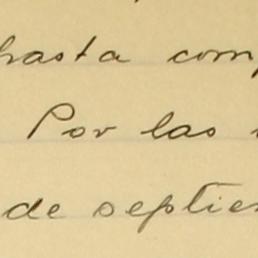 hasta com
Por las
de septie